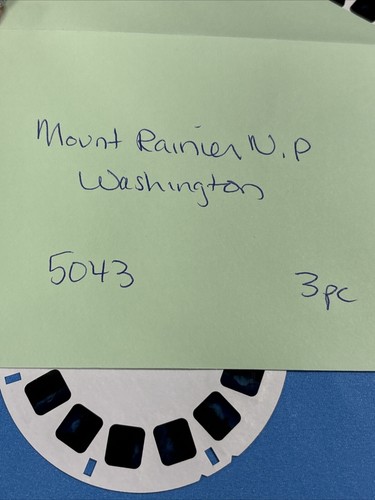 Mount Rainier N.P
Washington
5043 3pc